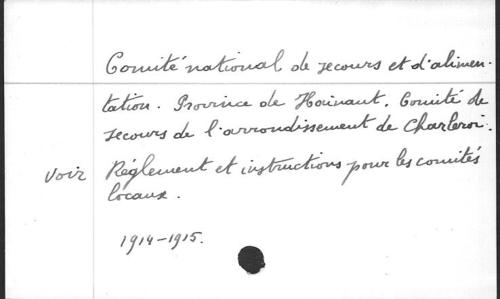 Comité national de secours et d'alimen-
tation. Province de Hainaut. Comité de
secours de l'arrondissement de Charleroi.
voir Réglement et instructions pour les comités
locaux.
1914-1915.